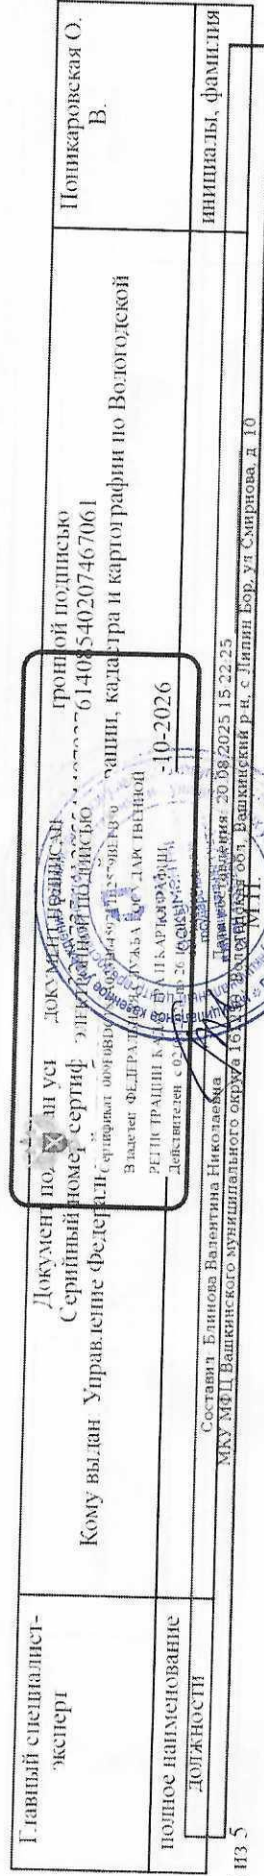 Главный специалист-
эксперт
Документ под ан уси
тронной подписью
Серийный номер сертиф
61408540207467061
Кому выдан Управление Федераль
рации, кадастра и картографии по Вологодской
Поникаровская О.
В.
ДОКУМЕНТ ПОДПИСАН
ЭЛЕКТРОННОЙ ПОДПИСЬЮ
Сертификат
Владелец ФЕДЕРАЛЬНАЯ СЛУЖБА ГОСУДАРСТВЕННОЙ
РЕГИСТРАЦИИ КАДАСТРА И КАРТОГРАФИИ
Действителен с 02
-10-2026
полное наименование
должности
инициалы, фамилия
Составил Блинова Валентина Николаевна
Дата составления: 20/08/2025 15 22.25
МКУ МФЦ Вашкинского муниципального округа 16 Вологодская обл, Вашкинский р н, с Липин Бор, ул Смирнова, д 10
М.П.
из 5